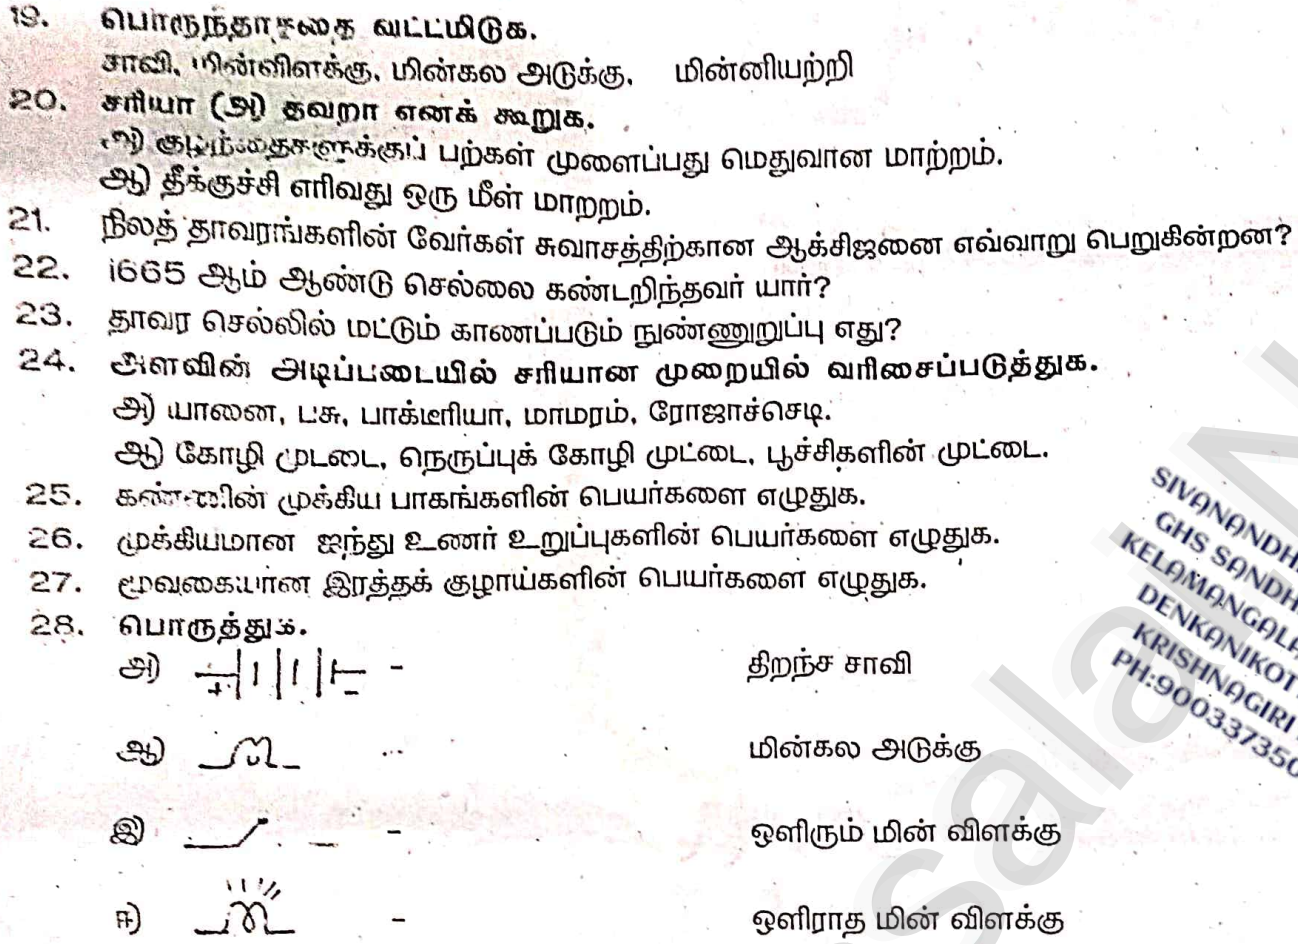 19. பொருந்தாததை வட்டமிடுக.
சாவி, மின்விளக்கு, மின்கல அடுக்கு, மின்னியற்றி
20. சரியா (அ) தவறா எனக் கூறுக.
அ) குழந்தைகளுக்குப் பற்கள் முளைப்பது மெதுவான மாற்றம்.
ஆ) தீக்குச்சி எரிவது ஒரு மீள் மாற்றம்.
21. நிலத் தாவரங்களின் வேர்கள் சுவாசத்திற்கான ஆக்சிஜனை எவ்வாறு பெறுகின்றன?
22. 1665 ஆம் ஆண்டு செல்லை கண்டறிந்தவர் யார்?
23. தாவர செல்லில் மட்டும் காணப்படும் நுண்ணுறுப்பு எது?
24. அளவின் அடிப்படையில் சரியான முறையில் வரிசைப்படுத்துக.
அ) யானை, பசு, பாக்டீரியா, மாமரம், ரோஜாச்செடி.
ஆ) கோழி முட்டை, நெருப்புக் கோழி முட்டை, பூச்சிகளின் முட்டை.
25. கண்களின் முக்கிய பாகங்களின் பெயர்களை எழுதுக.
26. முக்கியமான ஐந்து உணர் உறுப்புகளின் பெயர்களை எழுதுக.
27. மூவகையான இரத்தக் குழாய்களின் பெயர்களை எழுதுக.
28. பொருத்துக.
அ) - திறந்ச சாவி
ஆ) - மின்கல அடுக்கு
இ) - ஒளிரும் மின் விளக்கு
ஈ) - ஒளிராத மின் விளக்கு
SIVANANDH
GHS SANDH
KELAMANGALA
DENKANIKOT
KRISHNAGIRI
PH:900337350
salai N